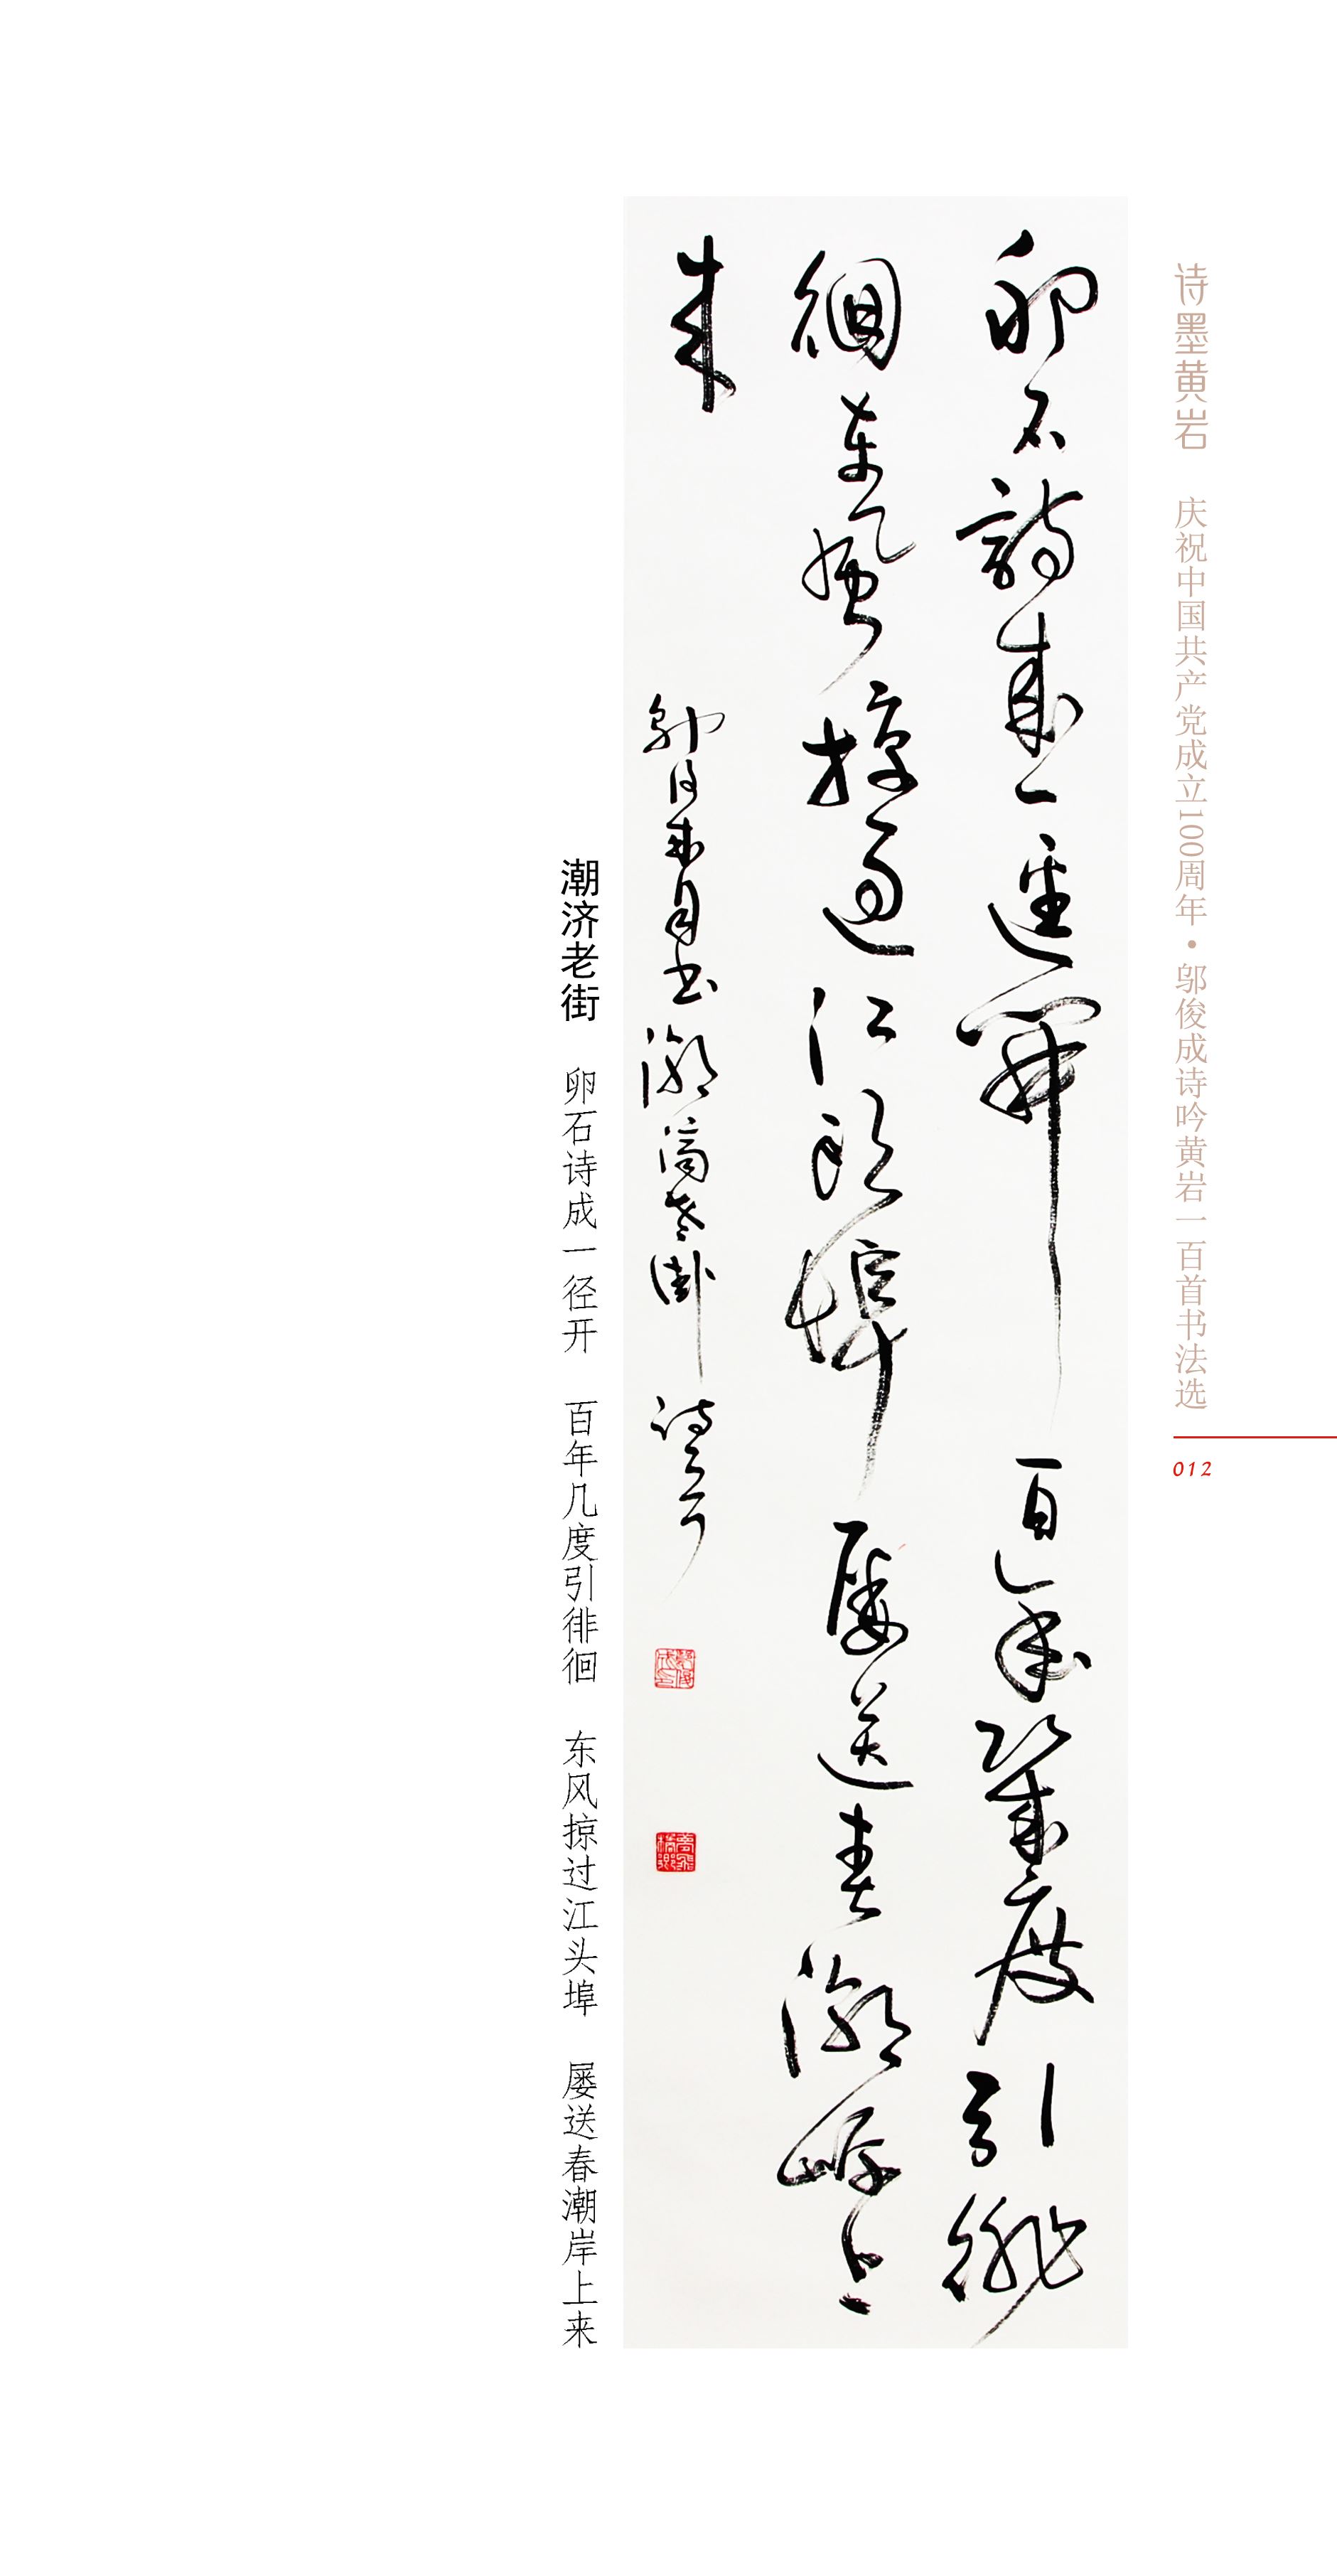 诗墨黄岩 庆祝中国共产党成立100周年·邬俊成诗吟黄岩一百首书法选
012
卵石詩成一逕開百年幾度引徘
徊東風掠過江頭埠屡送春潮岸上
来
鄔俊成自书潮濟老街诗一首
潮济老街 卵石诗成一径开 百年几度引徘徊 东风掠过江头埠 屡送春潮岸上来